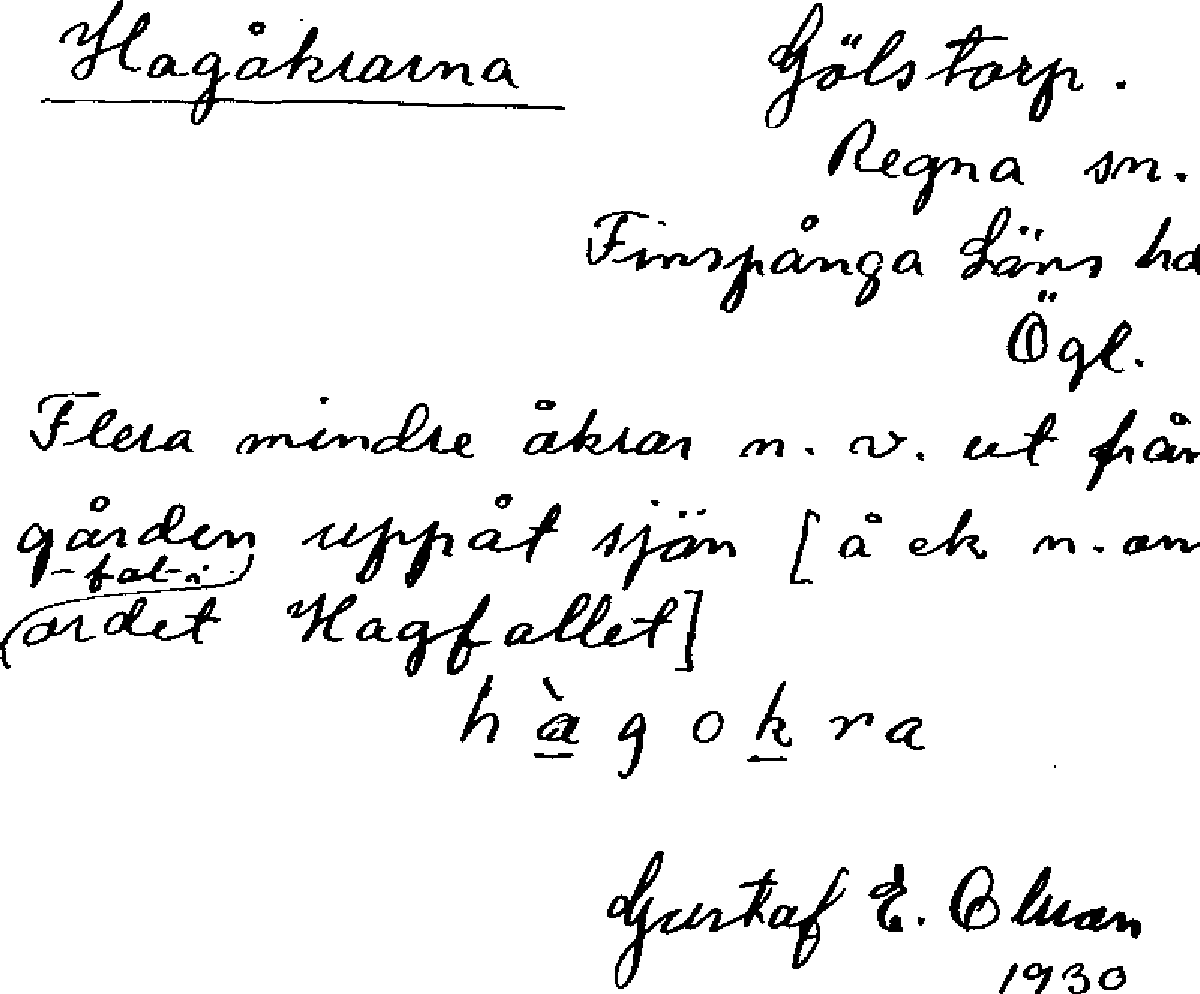 Hagåkrarna Gölstorp.
Regna sn.
Finspånga Läns hd
Ögl.
Flera mindre åkrar n. v. ut från
gården uppåt sjön [å ek n. om
ordet Hagfallet]
hàgokra
Gustaf E. Olsson
1930